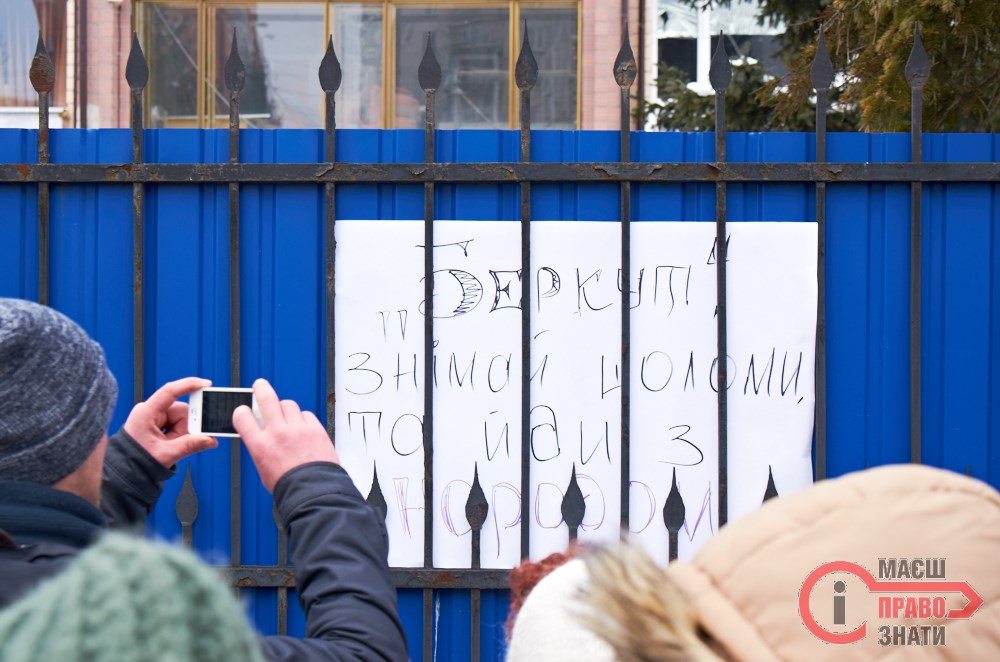 „Беркут"
знімай шоломи,
та йди з
народом
МАЄШ
ПРАВО
ЗНАТИ